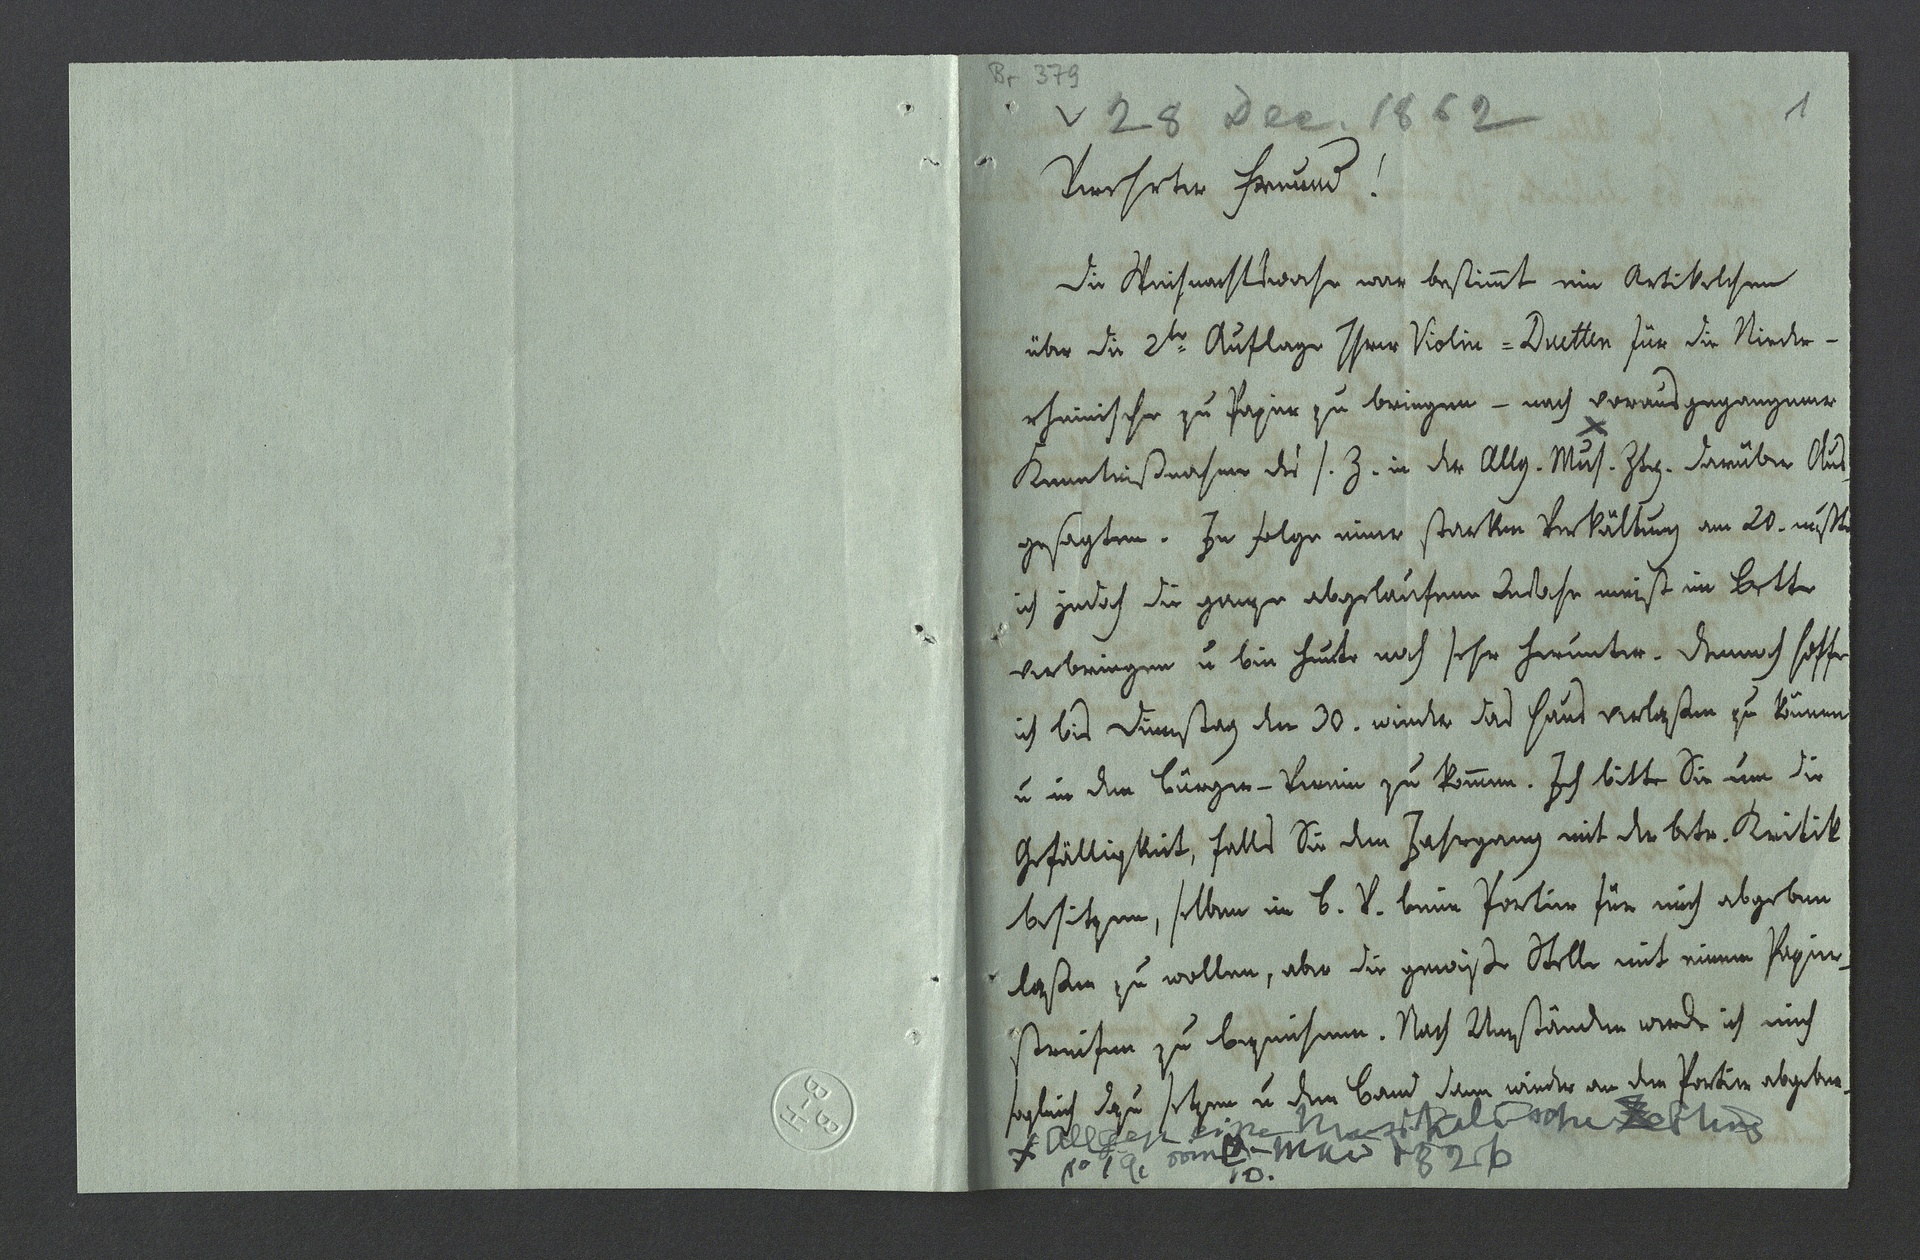 Br 379
28 Dec. 1862
1
Verehrter Freund!
Die Weihnachtswoche war bestim̅t ein Artikelchen
über die 2te Auflage Ihrer Violin=Duetten für die Nieder-
rheinische zu Papier zu bringen – nach vorausgegangener
x
Kenntnißnahme des s. Z. in der Allg. Mus. Ztg. darüber Aus
gesagten. In folge einer starken Verkältung am 20. mußte
ich jedoch die ganze abgelaufene Woche meist im Bette
verbringen u bin heute noch sehr herunter. Dennoch hoffe
ich bis Dienstag den 30. wieder das Haus verlaßen zu können
u in den Bürger-Verein zu kom̅en. Ich bitte Sie um die
Gefälligkeit, falls Sie den Jahrgang mit der betr. Kritik
besitzen, selben in B. V. beim Portier für mich abgeben
laßen zu wollen, aber die gewiße Stelle mit einem Papier-
streifen zu bezeichnen. Nach Umständen werde ich mich
sogleich dazu setzen u den Band dann wieder an den Portier abgeben.
x Allgemeine Musikalische Zeitung
No 19. vom 10. Mai 1826
B-H
BH